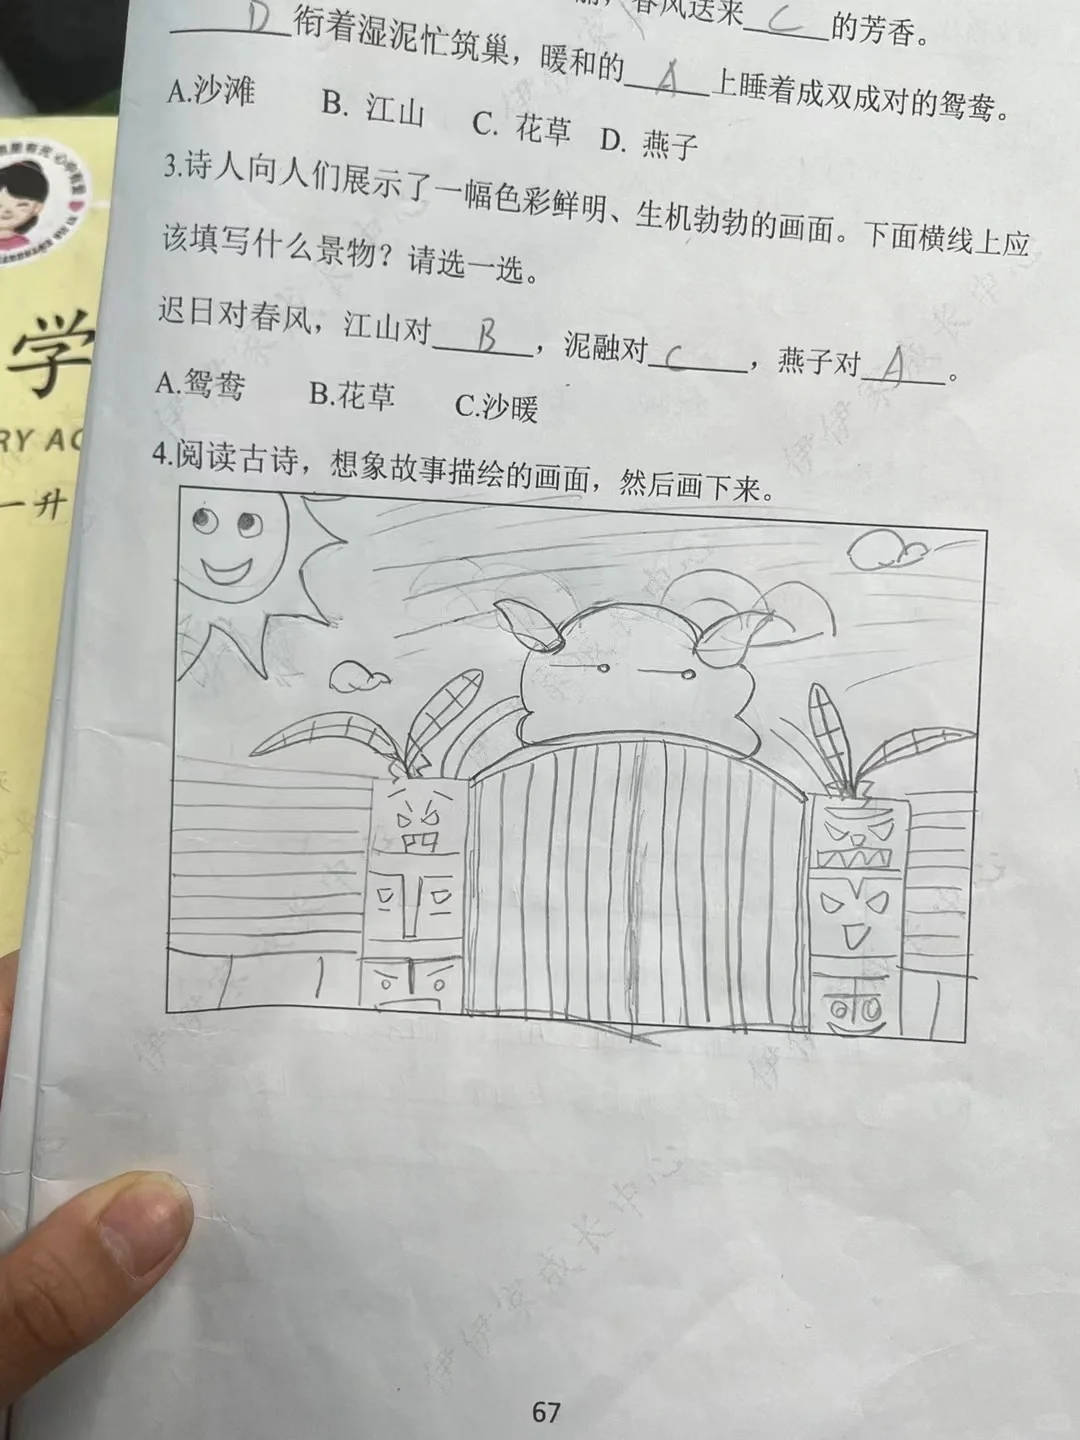 春风送来 C 的芳香。
D 衔着湿泥忙筑巢，暖和的 A 上睡着成双成对的鸳鸯。
A.沙滩 B. 江山 C. 花草 D. 燕子
3.诗人向人们展示了一幅色彩鲜明、生机勃勃的画面。下面横线上应
该填写什么景物？请选一选。
迟日对春风，江山对 B ，泥融对 C ，燕子对 A 。
A.鸳鸯 B.花草 C.沙暖
4.阅读古诗，想象故事描绘的画面，然后画下来。
学
RY AC
一升
伊伊家成长中心
67